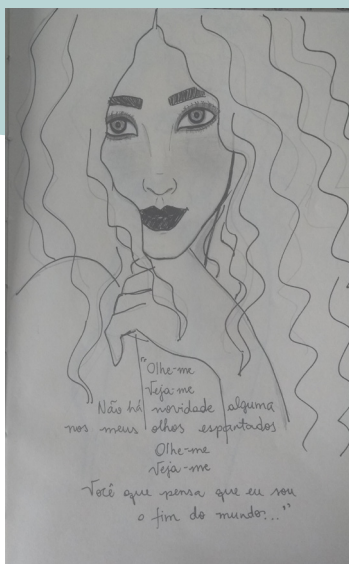 "Olhe-me
Veja-me
Não há novidade alguma
nos meus olhos espantados
Olhe-me
Veja-me
Você que pensa que eu sou
o fim do mundo..."